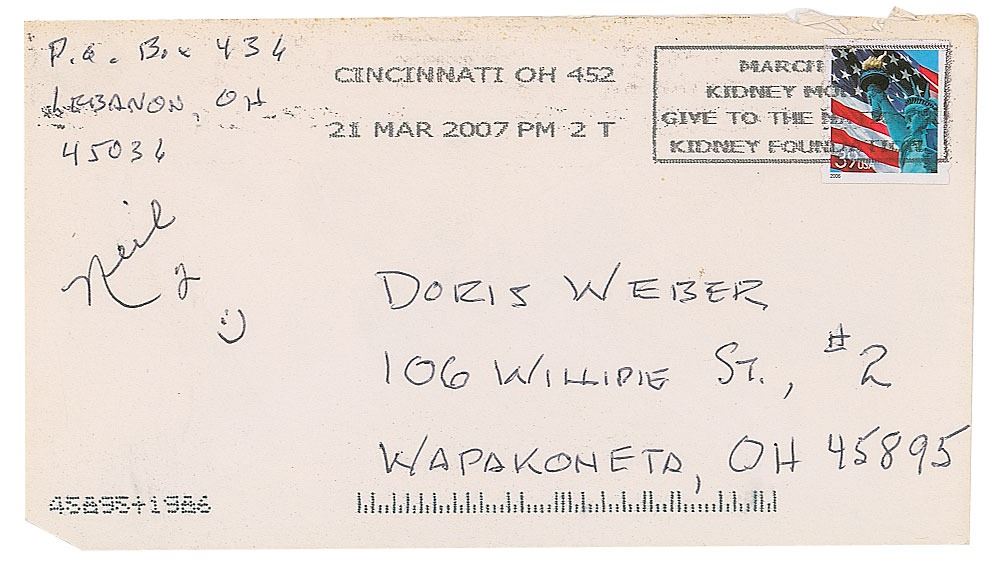 P.O. Box 436
LEBANON, OH
45036
CINCINNATI OH 452
21 MAR 2007 PM 2 T
MARCH
KIDNEY MON
GIVE TO THE NA
KIDNEY FOUNDATION
39 USA
2006
Neil
:)
DORIS WEBER
106 WILLIPIE ST., #2
WAPAKONETA, OH 45895
45895+1986